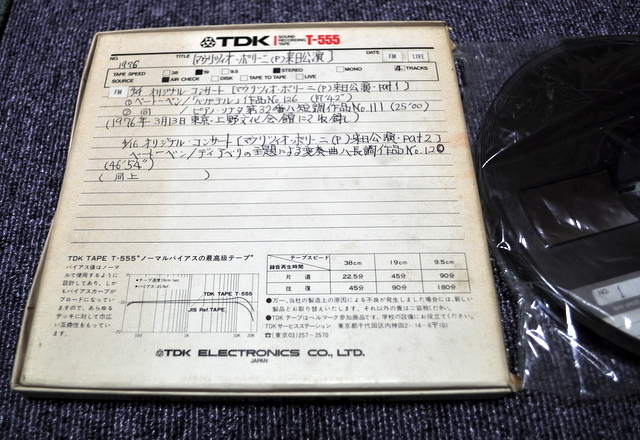 TDK SOUND RECORDING TAPE T-555
NO. 1976 TITLE [マウリツィオ・ポリーニ(P)来日公演] DATE FM LIVE
TAPE SPEED 38 19 9.5 STEREO MONO 4 TRACKS
SOURCE AIR CHECK DISK TAPE TO TAPE LIVE
FM 3/4 オリジナル コンサート [マウリツィオ・ポリーニ(P)来日公演・Part1]
① ベートーベン/ 作品No.126 (17'42")
② 同 / ピアノソナタ 第32番 ハ短調 作品No.111 (25'00)
(1976年3月13日 東京・上野文化会館にて収録)
4/16 オリジナル・コンサート [マウリツィオ・ポリーニ(P)来日公演・Part2]
ベートーベン/ディアベリの主題による変奏曲 ハ長調 作品No.120
(46'54")
(同上)
TDK TAPE T-555"ノーマルバイアスの最高級テープ"
バイアス値はノーマ
ルで使用するように
設計してあり、しか
もバイアスカーブが
ブロードになってい
ますので、あらゆる
デッキに対して巾広
い互換性をもってい
ます。
TDK TAPE T-555
JIS Ref TAPE
テープスピード 38cm 19cm 9.5cm
録音再生時間
片道 22.5分 45分 90分
往復 45分 90分 180分
●万一、当社の製造上の原因による不良が発生しました場合には、新しい
製品とお取り替えいたします。それ以外はご容赦ください。
●TDKテープはベルマーク参加商品です。学校の設備にお役立てください。
TDKサービスステーション 東京都千代田区内神田2-14-6
☎(東京03)257-2570
TDK ELECTRONICS CO., LTD.
JAPAN